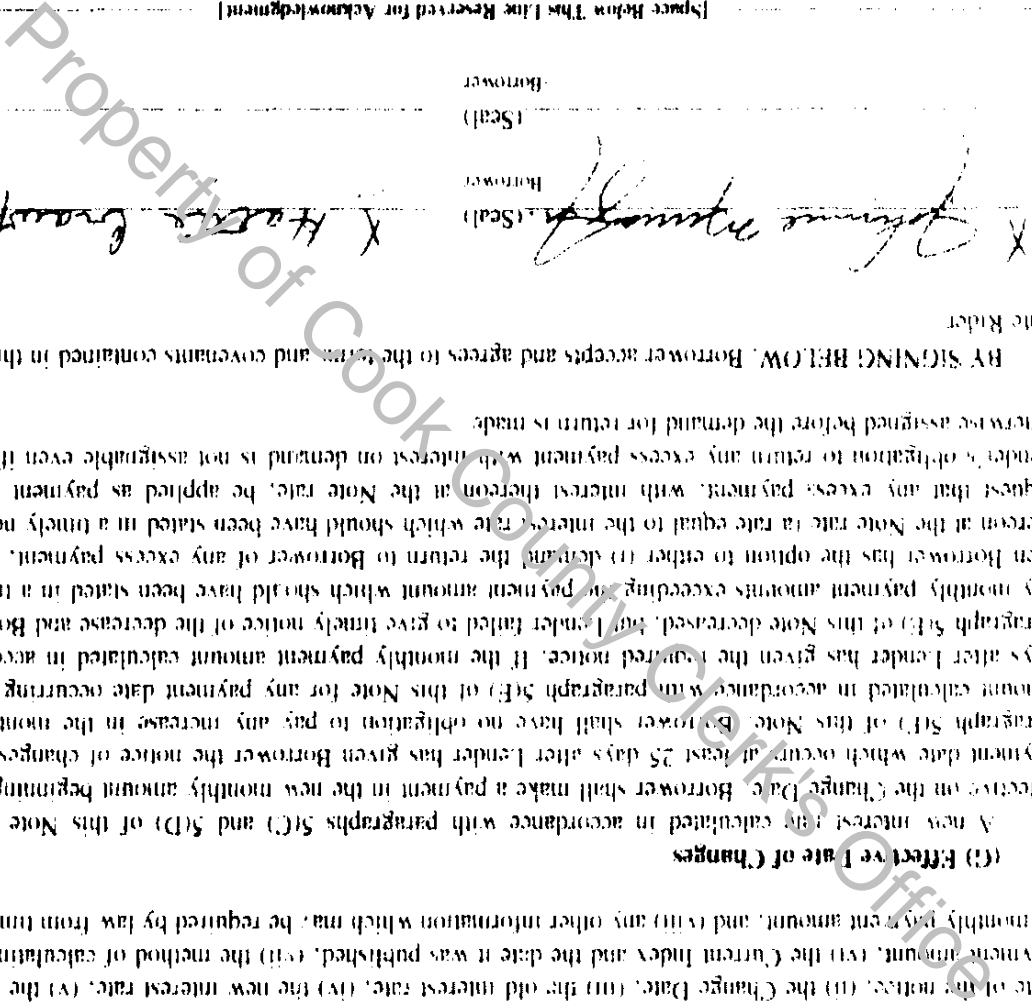 te of the notice, (ii) the Change Date, (iii) the old interest rate, (iv) the new interest rate, (v) the
yment amount, (vi) the Current Index and the date it was published, (vii) the method of calculatin
monthly payment amount, and (viii) any other information which may be required by law from tim
(G) Effective Date of Changes
A new interest rate calculated in accordance with paragraphs 5(C) and 5(D) of this Note
ective on the Change Date. Borrower shall make a payment in the new monthly amount beginning
yment date which occurs at least 25 days after Lender has given Borrower the notice of changes
ragraph 5(F) of this Note. Borrower shall have no obligation to pay any increase in the mont
nount calculated in accordance with paragraph 5(E) of this Note for any payment date occurring
ys after Lender has given the required notice. If the monthly payment amount calculated in acco
ragraph 5(E) of this Note decreased, but Lender failed to give timely notice of the decrease and Bo
y monthly payment amounts exceeding the payment amount which should have been stated in a ti
en Borrower has the option to either (i) demand the return to Borrower of any excess payment,
ereon at the Note rate (a rate equal to the interest rate which should have been stated in a timely no
quest that any excess payment, with interest thereon at the Note rate, be applied as payment
nder's obligation to return any excess payment with interest on demand is not assignable even if
herwise assigned before the demand for return is made
BY SIGNING BELOW, Borrower accepts and agrees to the terms and covenants contained in thi
te Rider
X Johnnie (Seal) X Hattie
Borrower
(Seal)
-Borrower
[Space Below This Line Reserved for Acknowledgment]
Property of Cook County Clerk's Office